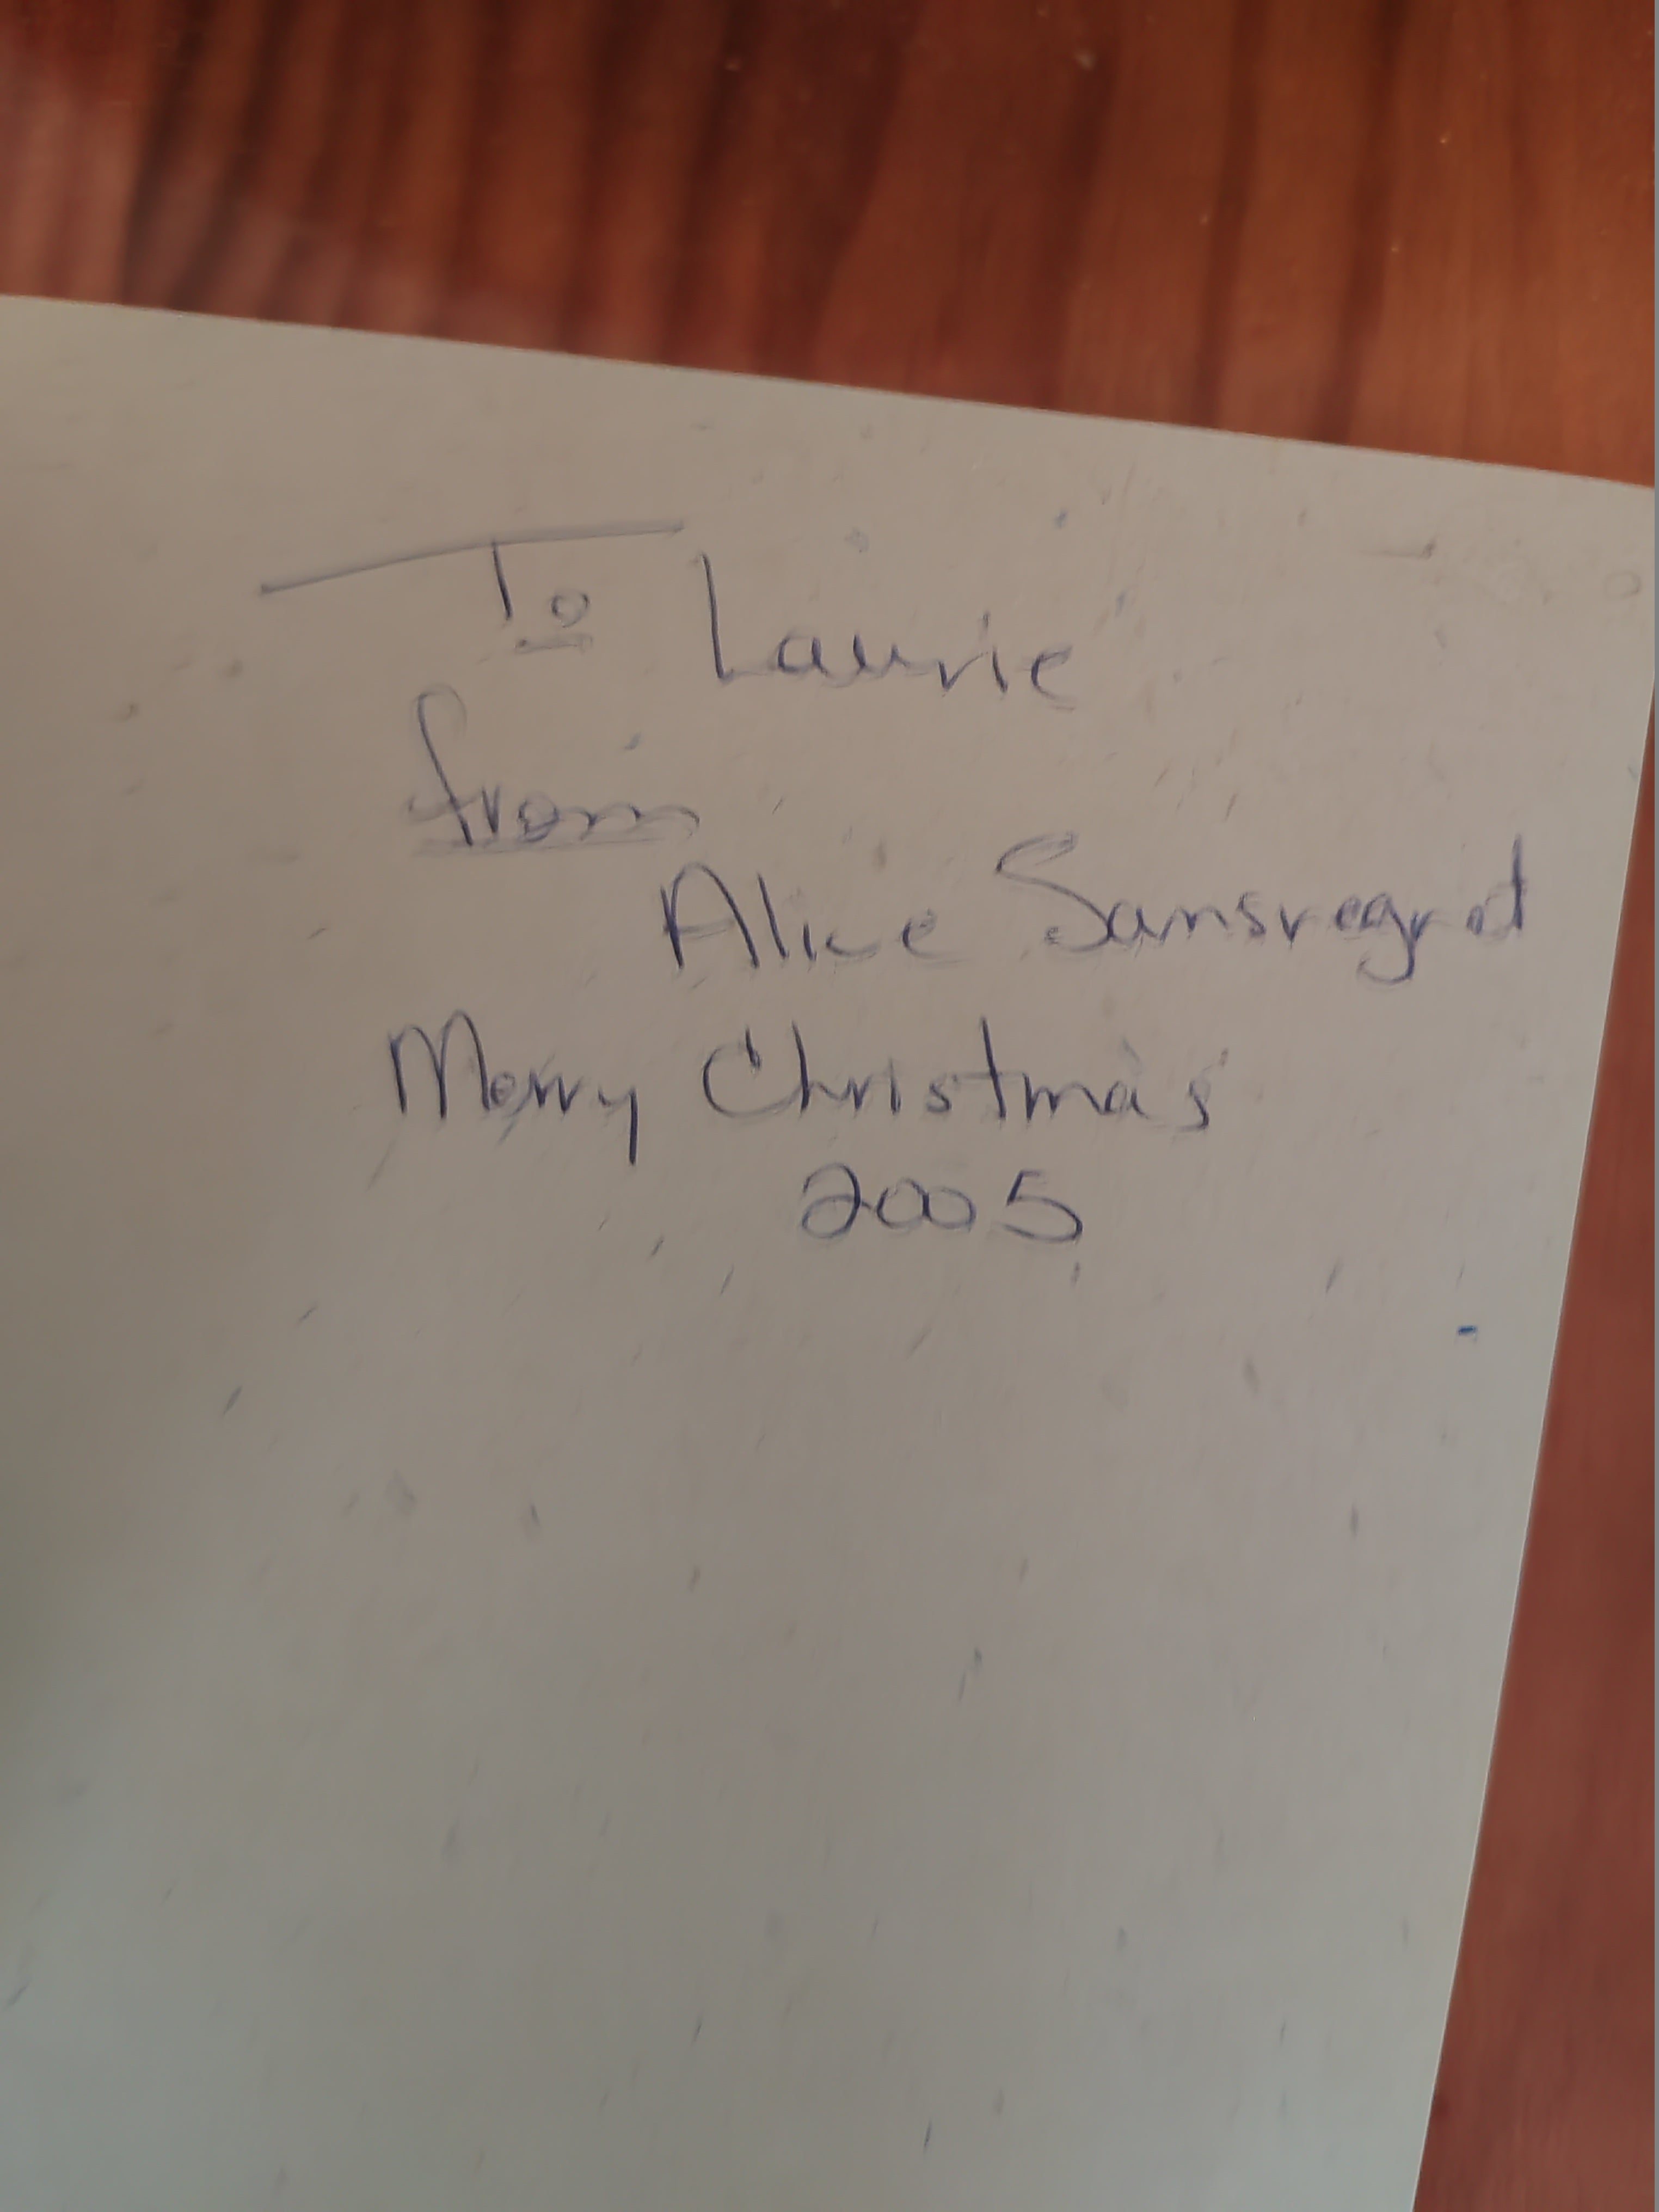 To Laurie
from
Alice Sansregret
Merry Christmas
2005